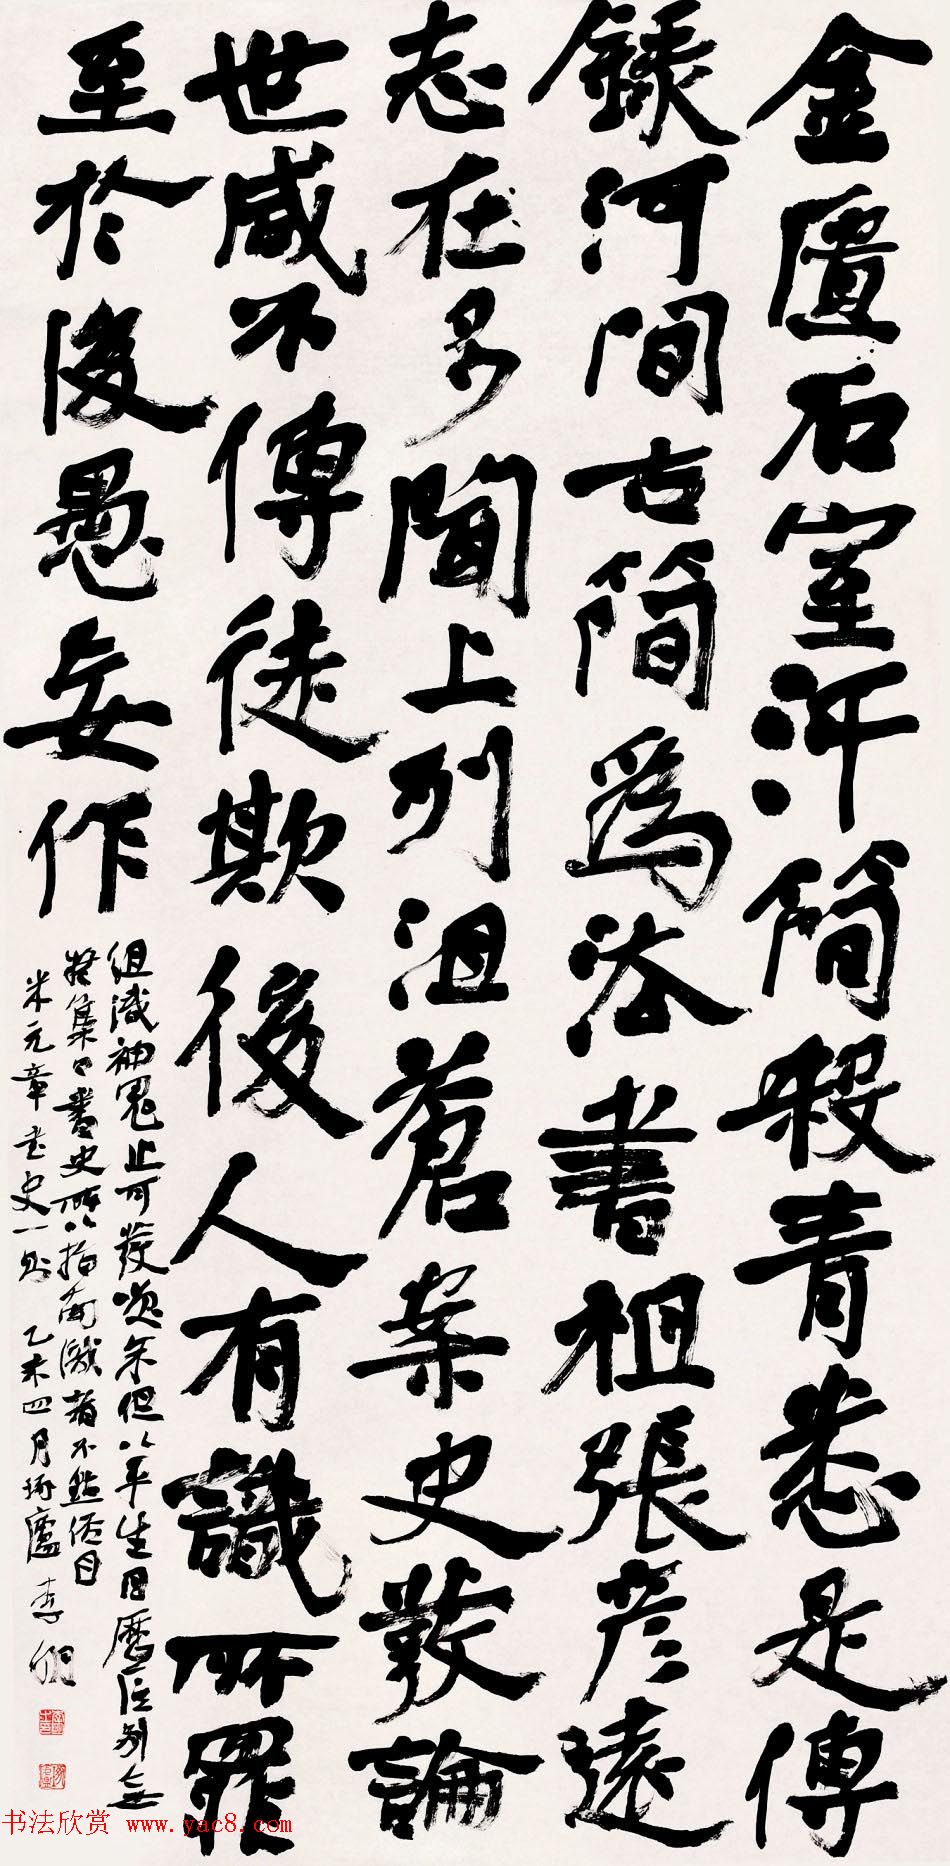 金匱石室汗簡殺青悉是傳
錄河間古簡爲法書祖張彥遠
志在多聞上列沮蒼案史敷論
世咸不傳徒欺後人有識所罪
至於後愚妄作
組識神鬼止可發笑余但以平生目歷區別無
疑集曰書史所以指南識者不點俗目
米元章書史一則 乙未四月琢廬 李明
书法欣赏 www.yac8.com